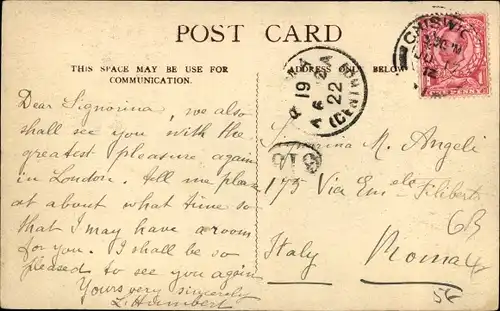 POST CARD
THIS SPACE MAY BE USED FOR
COMMUNICATION.
ADDRESS ONLY BELOW
Dear Signorina, we also
shall see you with the
greatest pleasure again
in London. tell me please
at about what time so
that I may have a room
for you. I shall be so
pleased to see you again
Yours very sincerely
L. Humbert
CHISWIC
PENNY
19
22
Signorina M. Angeli
175 Via Em ele Filiberto
6B
Italy
Roma
56